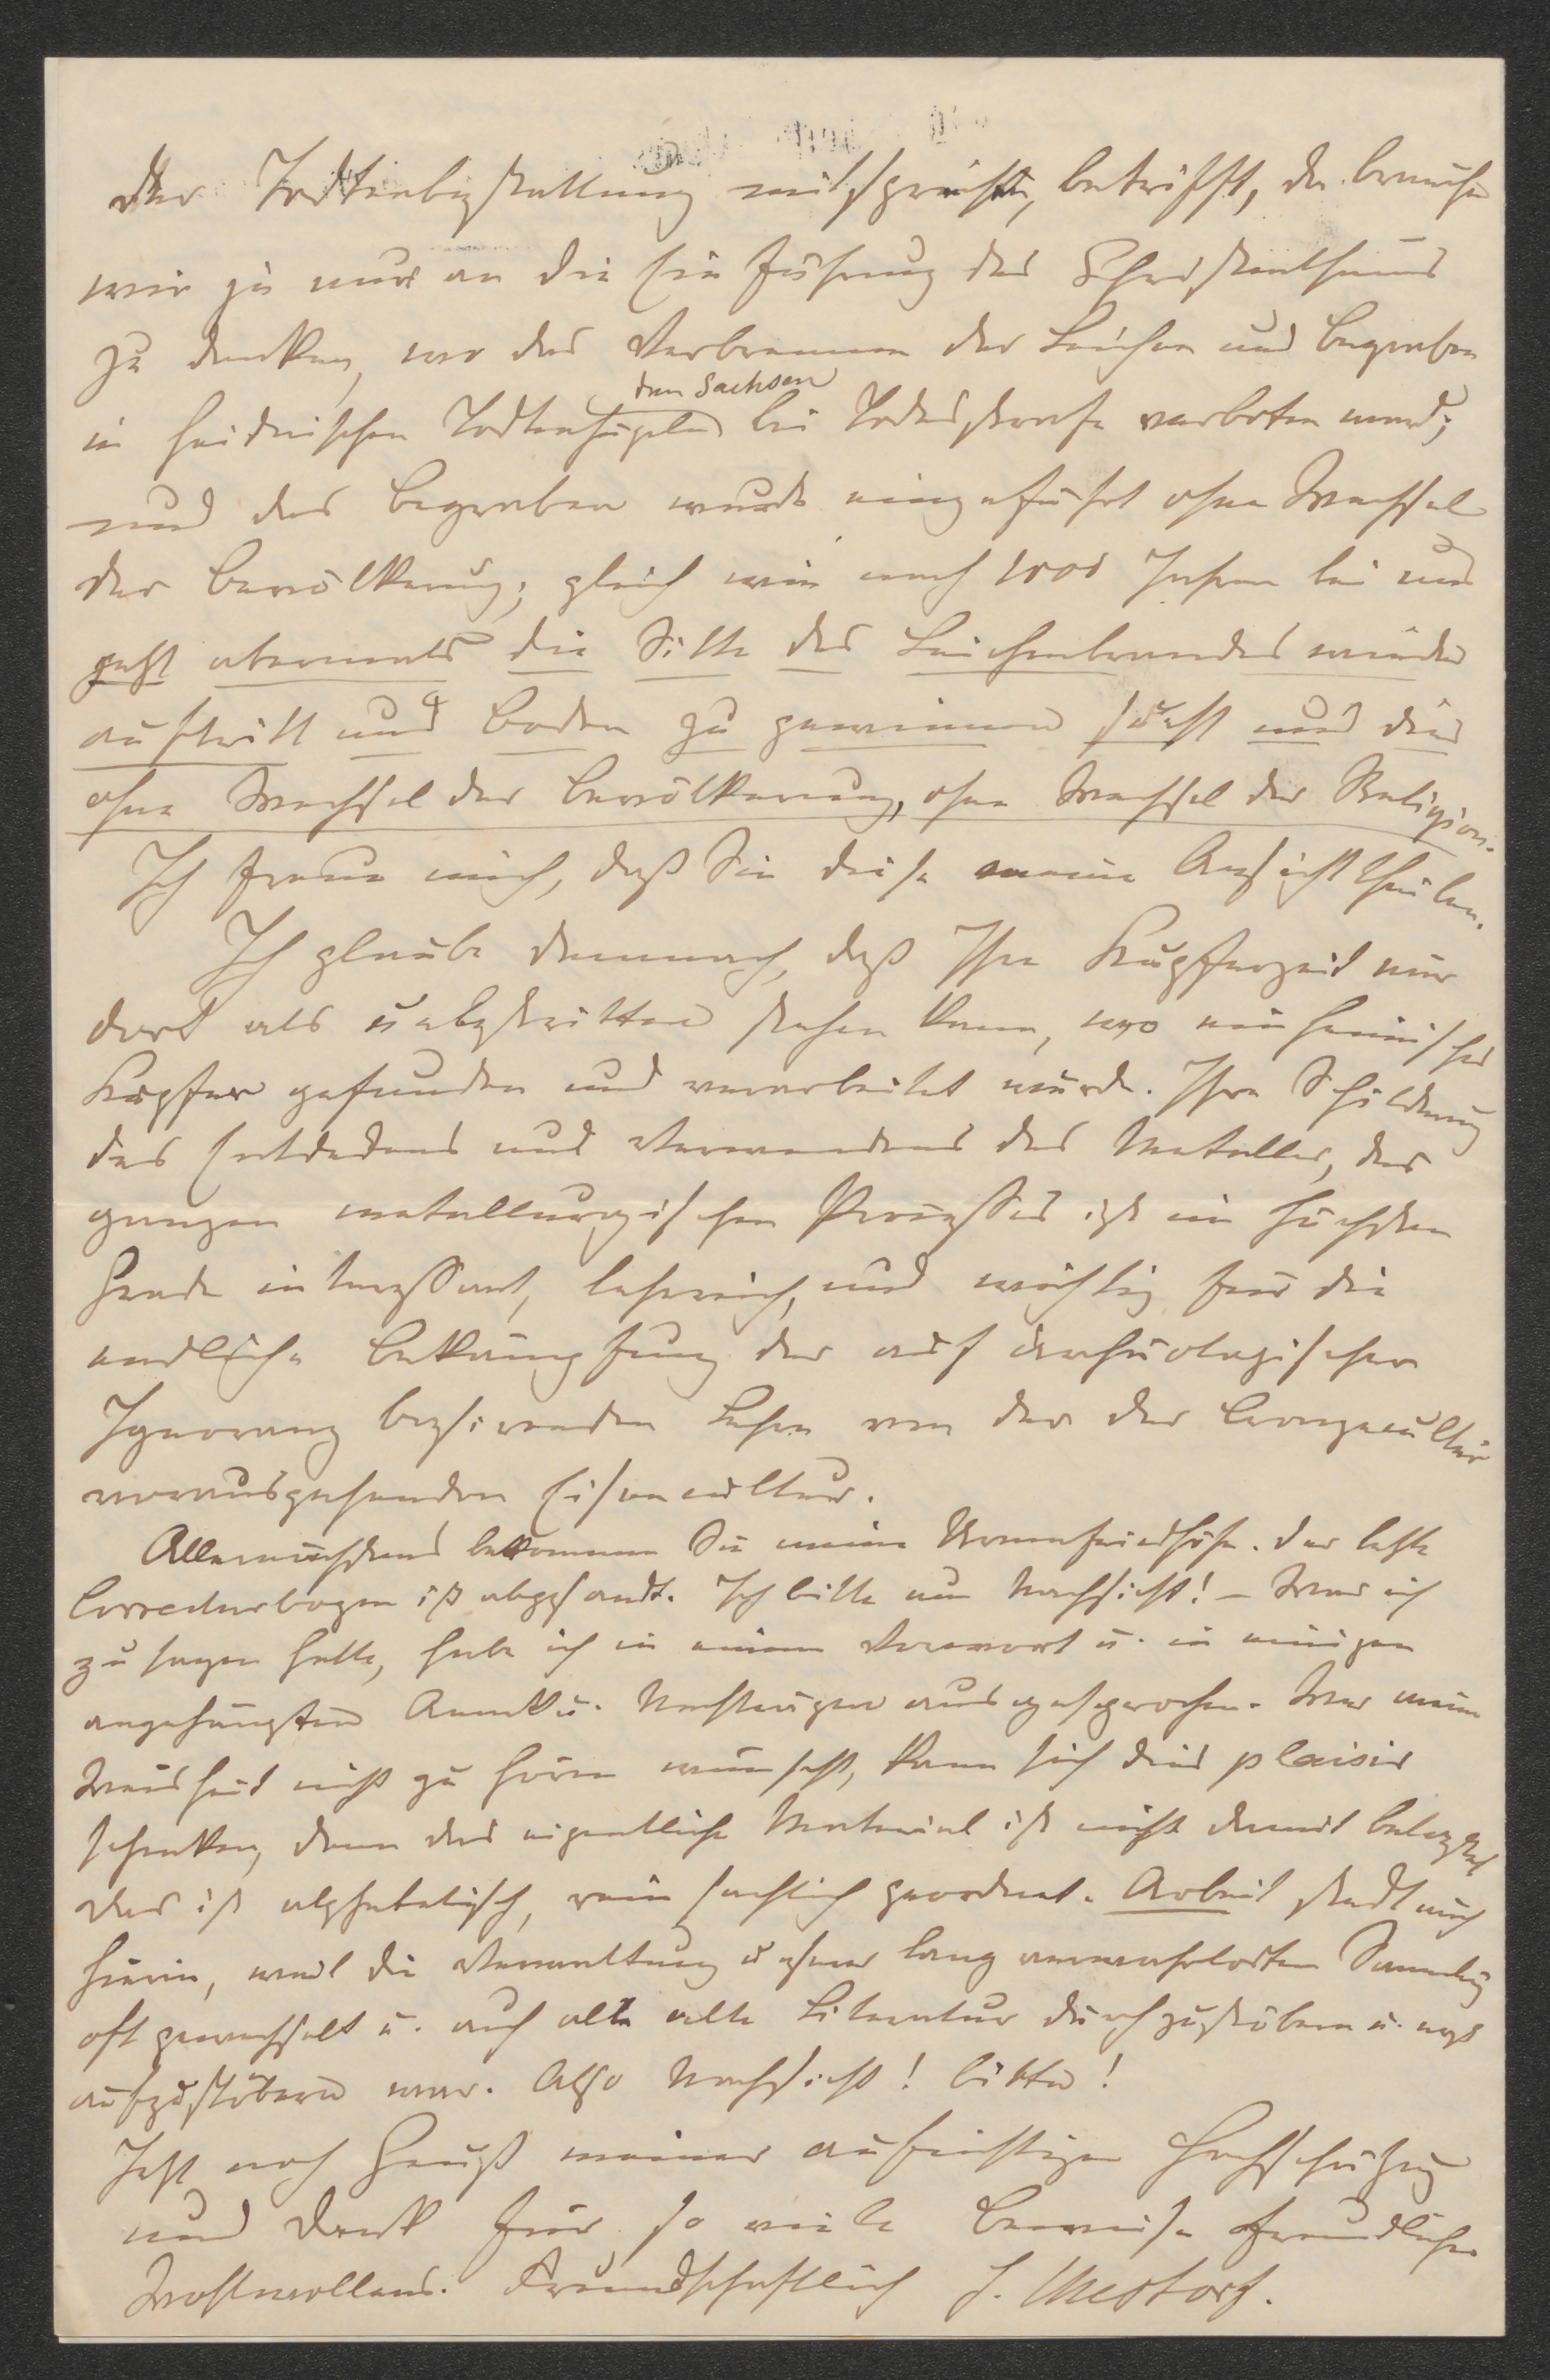 der Todtenbestattung mitspricht, betrifft, da brauchen
wir ja nur an die Einführung des Christenthums
zu denken, wo das Verbrennen der Leichen und Begraben
den Sachsen
in heidnischen Todtenhügeln bei Todesstrafe verboten ward;
und das Begraben wurde eingeführt ohne Wechsel
der Bevölkerung; gleich wie nach 1000 Jahren bei uns
jetzt abermals die Sitte des Leichenbrandes wieder
auftritt und Boden zu gewinnen sucht und dies
ohne Wechsel der Bevölkerung, ohne Wechsel der Religion.
Ich freue mich, daß Sie diese meine Ansicht theilen.
Ich glaube demnach, daß Ihre Kupferzeit nur
dort als unbestritten stehen kann, wo einheimisches
Kupfer gefunden und verarbeitet wurde. Ihre Schilderung
des Entdeckens und Verwendens des Metalles, des
ganzen metallurgischen Prozesses ist im höchsten
Grade interessant, lehrreich, und wichtig für die
endliche Bekämpfung der auf archäologischer
Ignoranz basirenden Lehre von der der Bronzecultur
vorausgehenden Eisencultur.
Allernächstens bekommen Sie meine Urnenfriedhöfe. Der letzte
Correcturbogen ist abgesandt. Ich bitte um Nachsicht! – Was ich
zu sagen hatte, habe ich in einem Vorwort u. in einigen
angehängten Anmerku. Nachträgen ausgesprochen. Wer meine
Weisheit nicht zu hören wünscht, kann sich dies plaisir
schenken, denn das eigentliche Material ist nicht damit belastet
das ist alphabetisch, rein sachlich geordnet. Arbeit steckt auch
hierin, weil die Verwaltung unserer lang verwahrlosten Sammlung
oft gewechselt u. auch alle alte Literatur durchzustöbern u. erst
aufzustöbern war. Also Nachsicht! bitte!
Jetzt noch Gruß meiner aufrichtigen Hochschätzung
und Dank für so viele Beweise freundlichen
Wohlwollens. Freundschaftlich J. Mestorf.